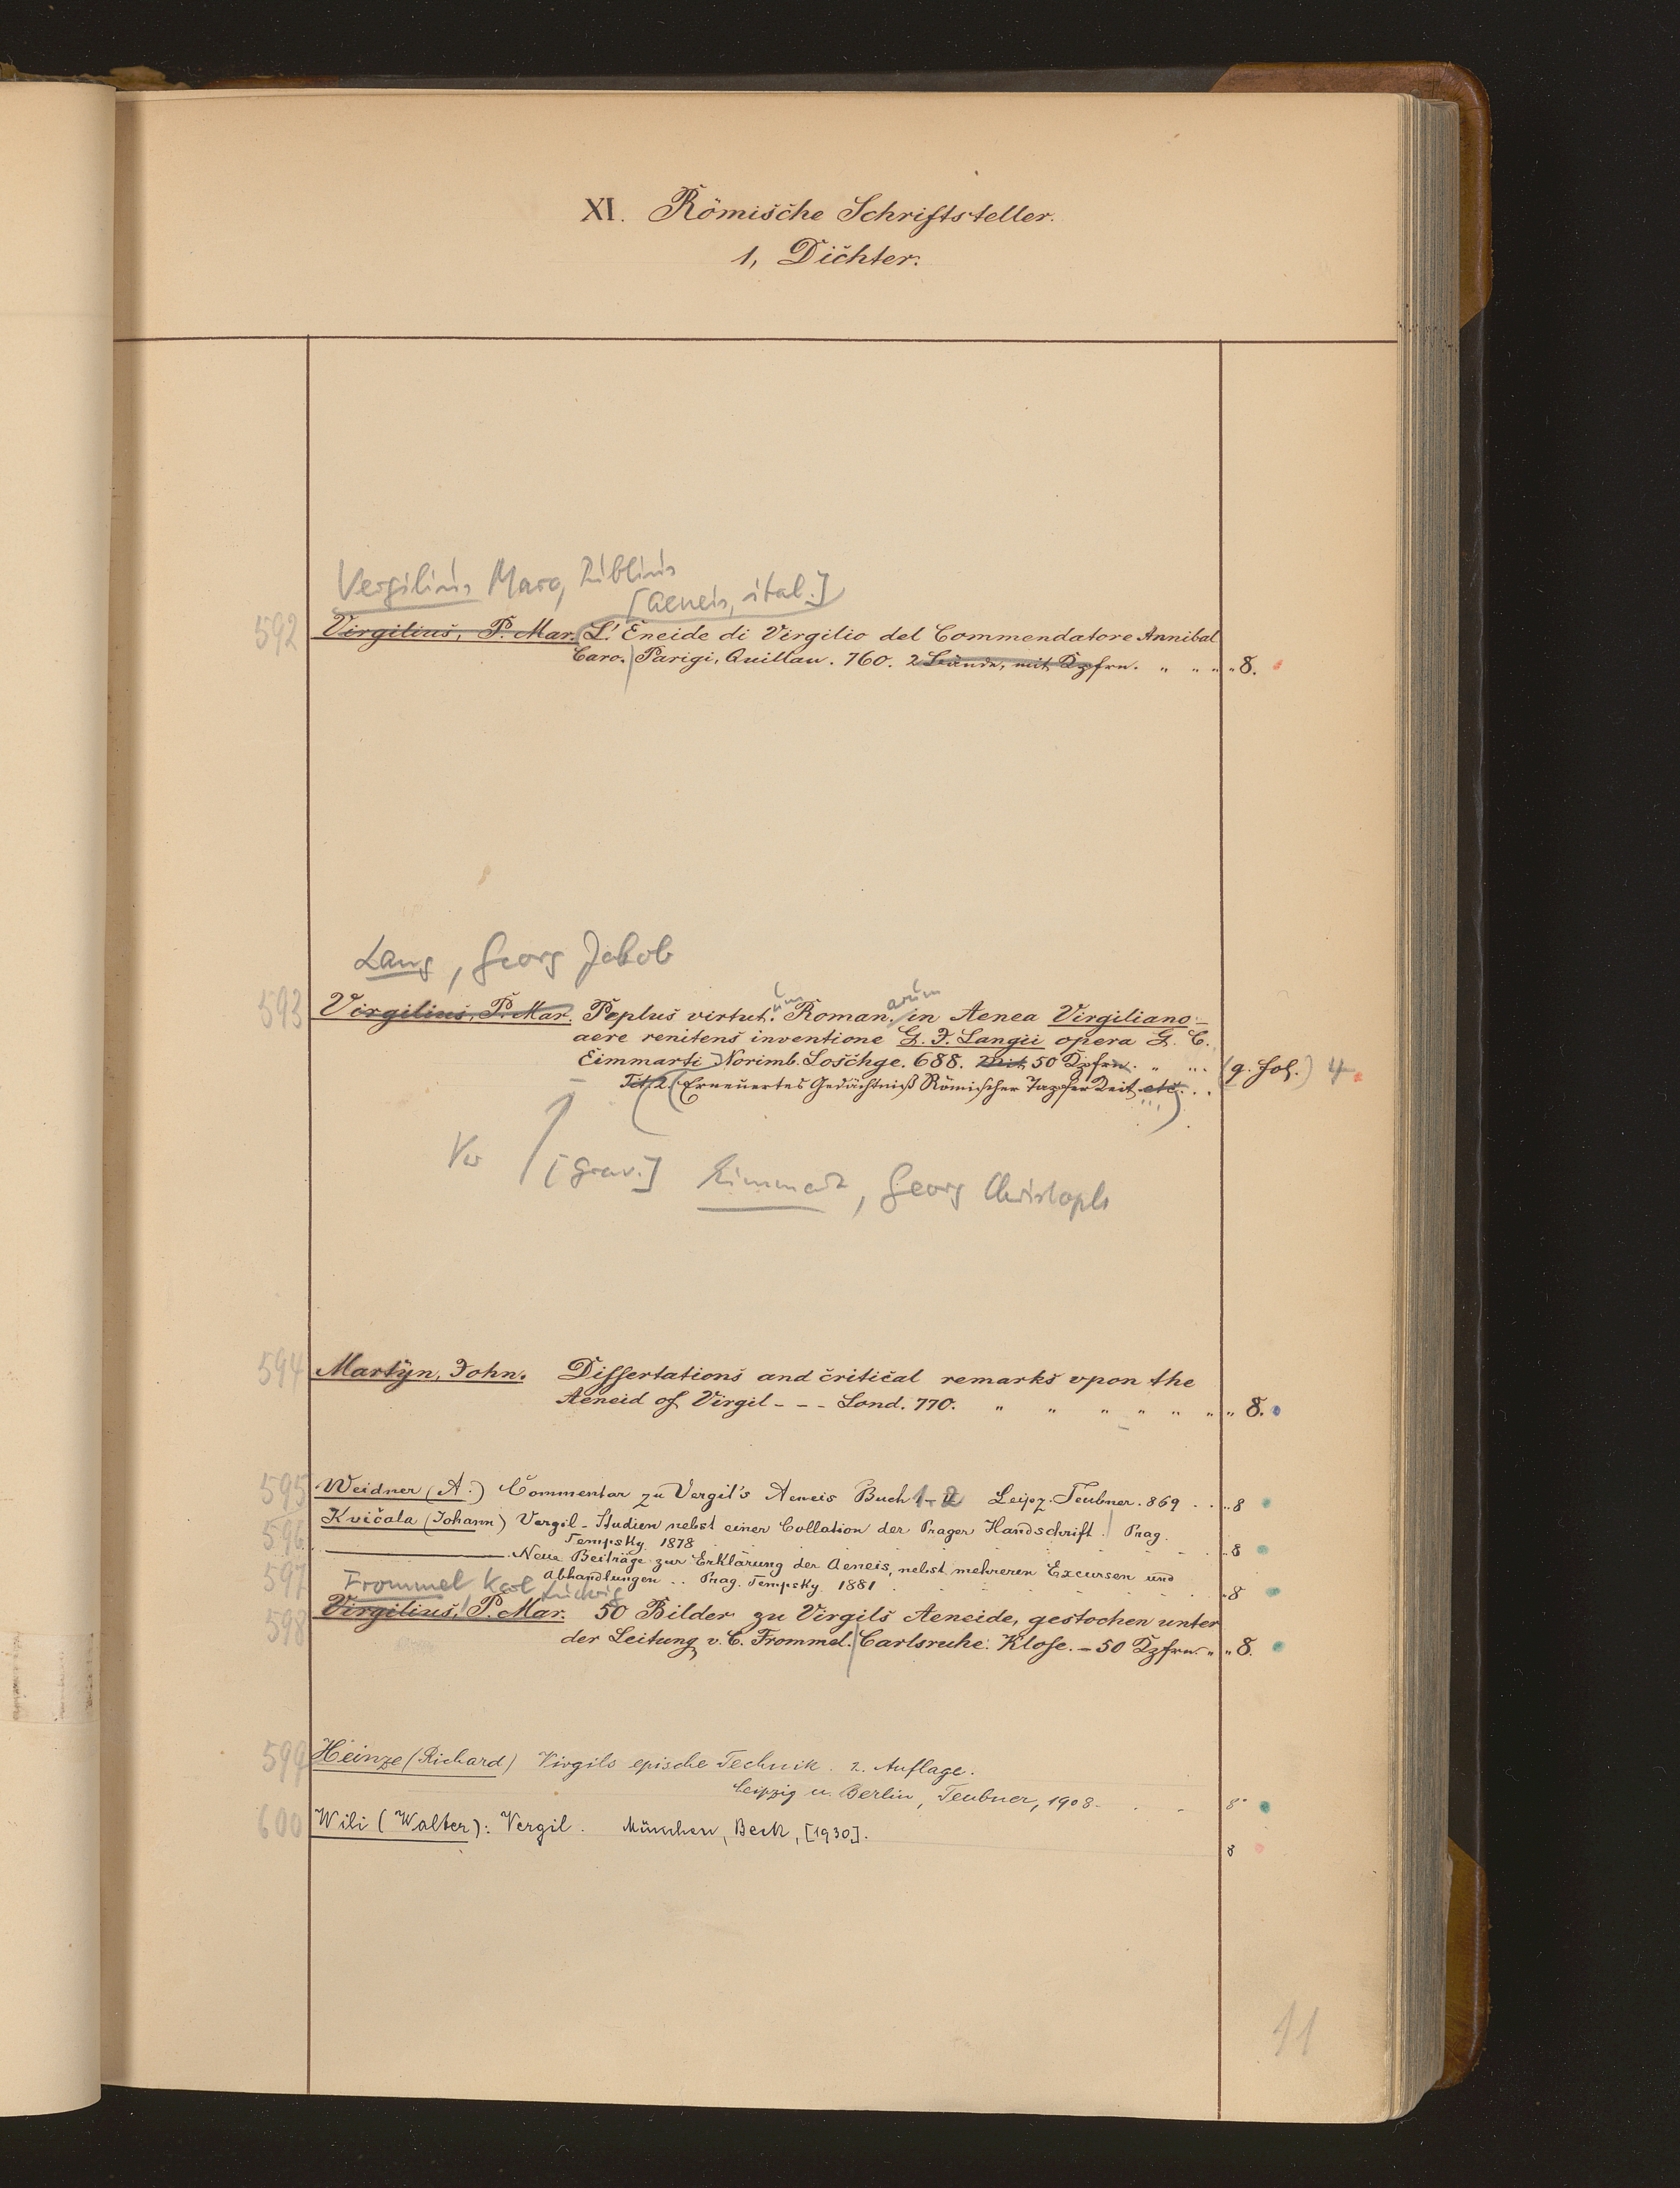 XI. Römische Schriftsteller.
1, Dichter.
Vergilius Maro, Publius
[Aeneis, ital.]
592 Virgilius, P. Mar. L'Eneide di Virgilio del Commendatore Annibal
Caro. Parigi, Quillau. 760. 2 Bände, mit Kpfrn. " " " " 8.
Lang, Georg Jakob
593 Virgilius, P. Mar. Peplus virtut.um Roman.arum in Aenea Virgiliano
aere renitens inventione G. J. Langii opera G. C.
Eimmarti Norimb. Loschge. 688. Mit 50 Kpfrn. " ". (q. fol.) 4
Tit. 2 (Erneuertes Gedächtniß Römischer Tapferkeit etc.)
Vw [Grav.] Eimmart, Georg Christoph
594 Martyn, John. Dissertations and critical remarks upon the
Aeneid of Virgil - - - Lond. 770. " " " " " " " 8.
595 Weidner (A.) Commentar zu Vergil's Aeneis Buch 1-2 Leipz. Teubner. 869 . . " 8
596 Kvičala (Johann) Vergil-Studien nebst einer Collation der Prager Handschrift. Prag.
Tempsky 1878 " 8
597 ——— Neue Beiträge zur Erklärung der Aeneis, nebst mehreren Excursen und
Abhandlungen .. Prag. Tempsky 1881 . " 8
Frommel, Karl Ludwig
598 Virgilius, P. Mar. 50 Bilder zu Virgils Aeneide, gestochen unter
der Leitung v. C. Frommel. Carlsruhe. Klose. - 50 Kpfrn. " " 8.
599 Heinze (Richard) Virgils epische Technik. 2. Auflage.
Leipzig u. Berlin, Teubner, 1908. . - 8°
600 Wili (Walter): Vergil. München, Beck, [1930].
8
11